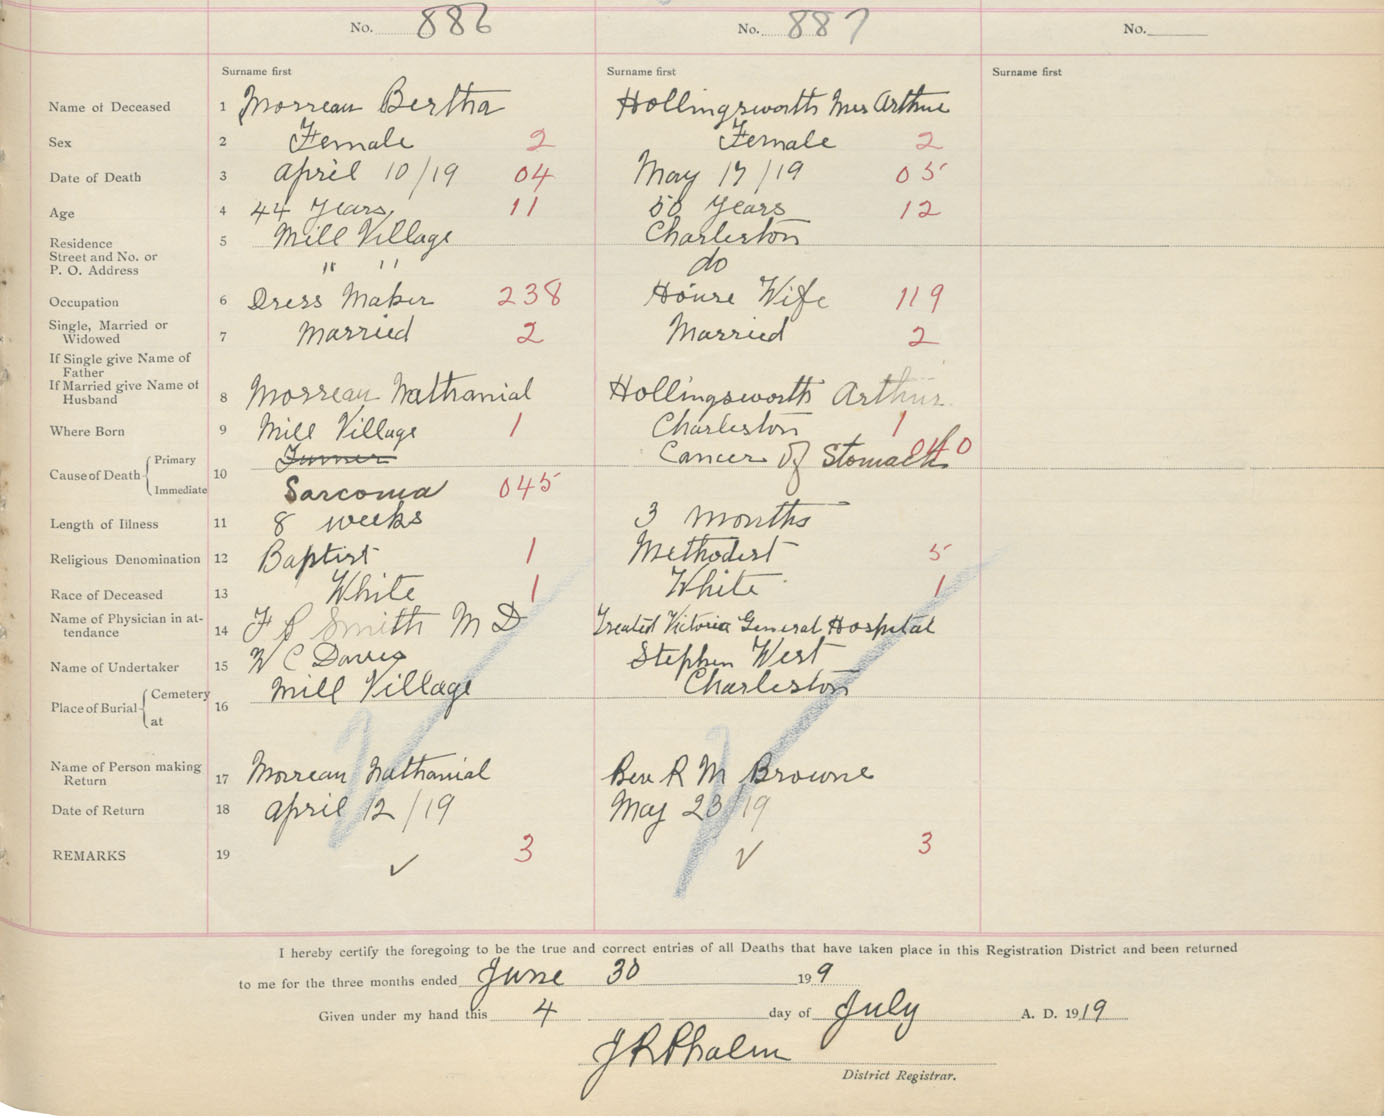 No. 886 No. 887 No.
Surname first Surname first Surname first
Name of Deceased 1 Morreau Bertha Hollingsworth Mrs Arthur
Sex 2 Female 2 Female 2
Date of Death 3 April 10/19 04 May 17/19 05
Age 4 44 Years 11 50 Years 12
Residence 5 Mill Village Charleston
Street and No. or
P. O. Address " " do
Occupation 6 Dress Maker 238 House Wife 119
Single, Married or
Widowed 7 Married 2 Married 2
If Single give Name of
Father
If Married give Name of
Husband 8 Morreau Nathanial Hollingsworth Arthur
Where Born 9 Mill Village 1 Charleston 1
Cause of Death Primary 10 Tumor Cancer of Stomach 040
Immediate Sarcoma 045
Length of Illness 11 8 weeks 3 months
Religious Denomination 12 Baptist 1 Methodist 5
Race of Deceased 13 White 1 White 1
Name of Physician in at-
tendance 14 Smith M D Treated Victoria General Hospital
Name of Undertaker 15 W C Stephen West
Place of Burial Cemetery 16 Mill Village Charleston
at
Name of Person making
Return 17 Morreau Nathanial Rev R M Browne
Date of Return 18 April 12/19 May 23/19
REMARKS 19 ✓ 3 ✓ 3
I hereby certify the foregoing to be the true and correct entries of all Deaths that have taken place in this Registration District and been returned
to me for the three months ended June 30 199
Given under my hand this 4 day of July A. D. 1919
J R Phalen
District Registrar.